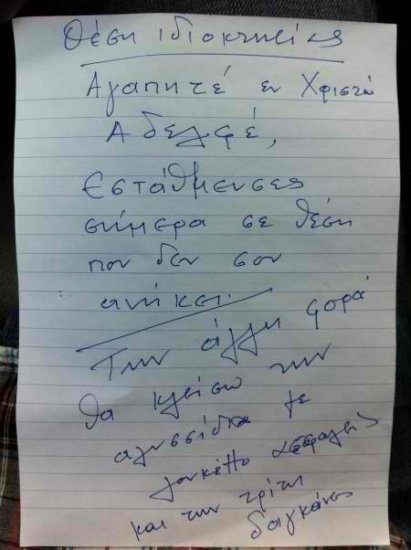 Θέση ιδιοκτησίας
Αγαπητέ εν Χριστώ
Αδελφέ,
Εστάθμευσες
σήμερα σε θέση
που δεν σου
ανήκει.
Την άλλη φορά
θα κλείσω την
αλυσσίδα με
λουκέττο ασφαλείας
και την τρίτη
δαγκάνες